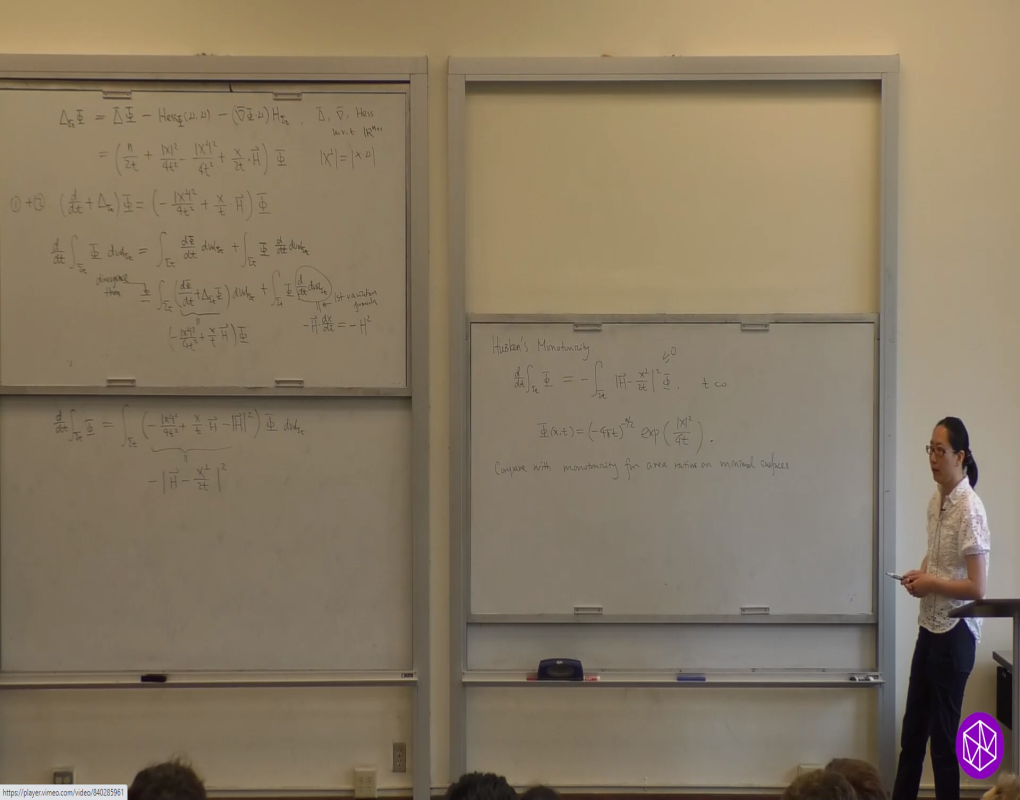 Δ_{Σ_t} Φ = Δ̄ Φ − Hess_Φ(ν,ν) − (∇̄Φ·ν) H_{Σ_t} , Δ̄, ∇̄, Hess
w.r.t ℝ^{n+1}
= ( n/2t + |x|²/4t² − |x^⊥|²/4t² + x/2t · H⃗ ) Φ |x^⊥| = |x·ν|
① + ② ( d/dt + Δ_{Σ_t} ) Φ = ( − |x^⊥|²/4t² + x/t · H⃗ ) Φ
d/dt ∫_{Σ_t} Φ dvol_{Σ_t} = ∫_{Σ_t} dΦ/dt dvol_{Σ_t} + ∫_{Σ_t} Φ d/dt dvol_{Σ_t}
divergence thm = ∫_{Σ_t} ( dΦ/dt + Δ_{Σ_t} Φ ) dvol_{Σ_t} + ∫_{Σ_t} Φ d/dt dvol_{Σ_t} 1st variation formula
( − |x^⊥|²/4t² + x/t H⃗ ) Φ − H⃗ dx/dt = − H²
d/dt ∫_{Σ_t} Φ = ∫_{Σ_t} ( − |x^⊥|²/4t² + x/t H⃗ − |H⃗|² ) Φ dvol_{Σ_t}
− | H⃗ − x^⊥/2t |²
Huisken's Monotonicity
d/dt ∫_{Σ_t} Φ = − ∫_{Σ_t} | H⃗ − x^⊥/2t |² Φ . t<0
Φ(x,t) = (−4πt)^{-n/2} exp( |x|²/4t ) .
Compare with monotonicity for area ratios on minimal surfaces
https://player.vimeo.com/video/840285961